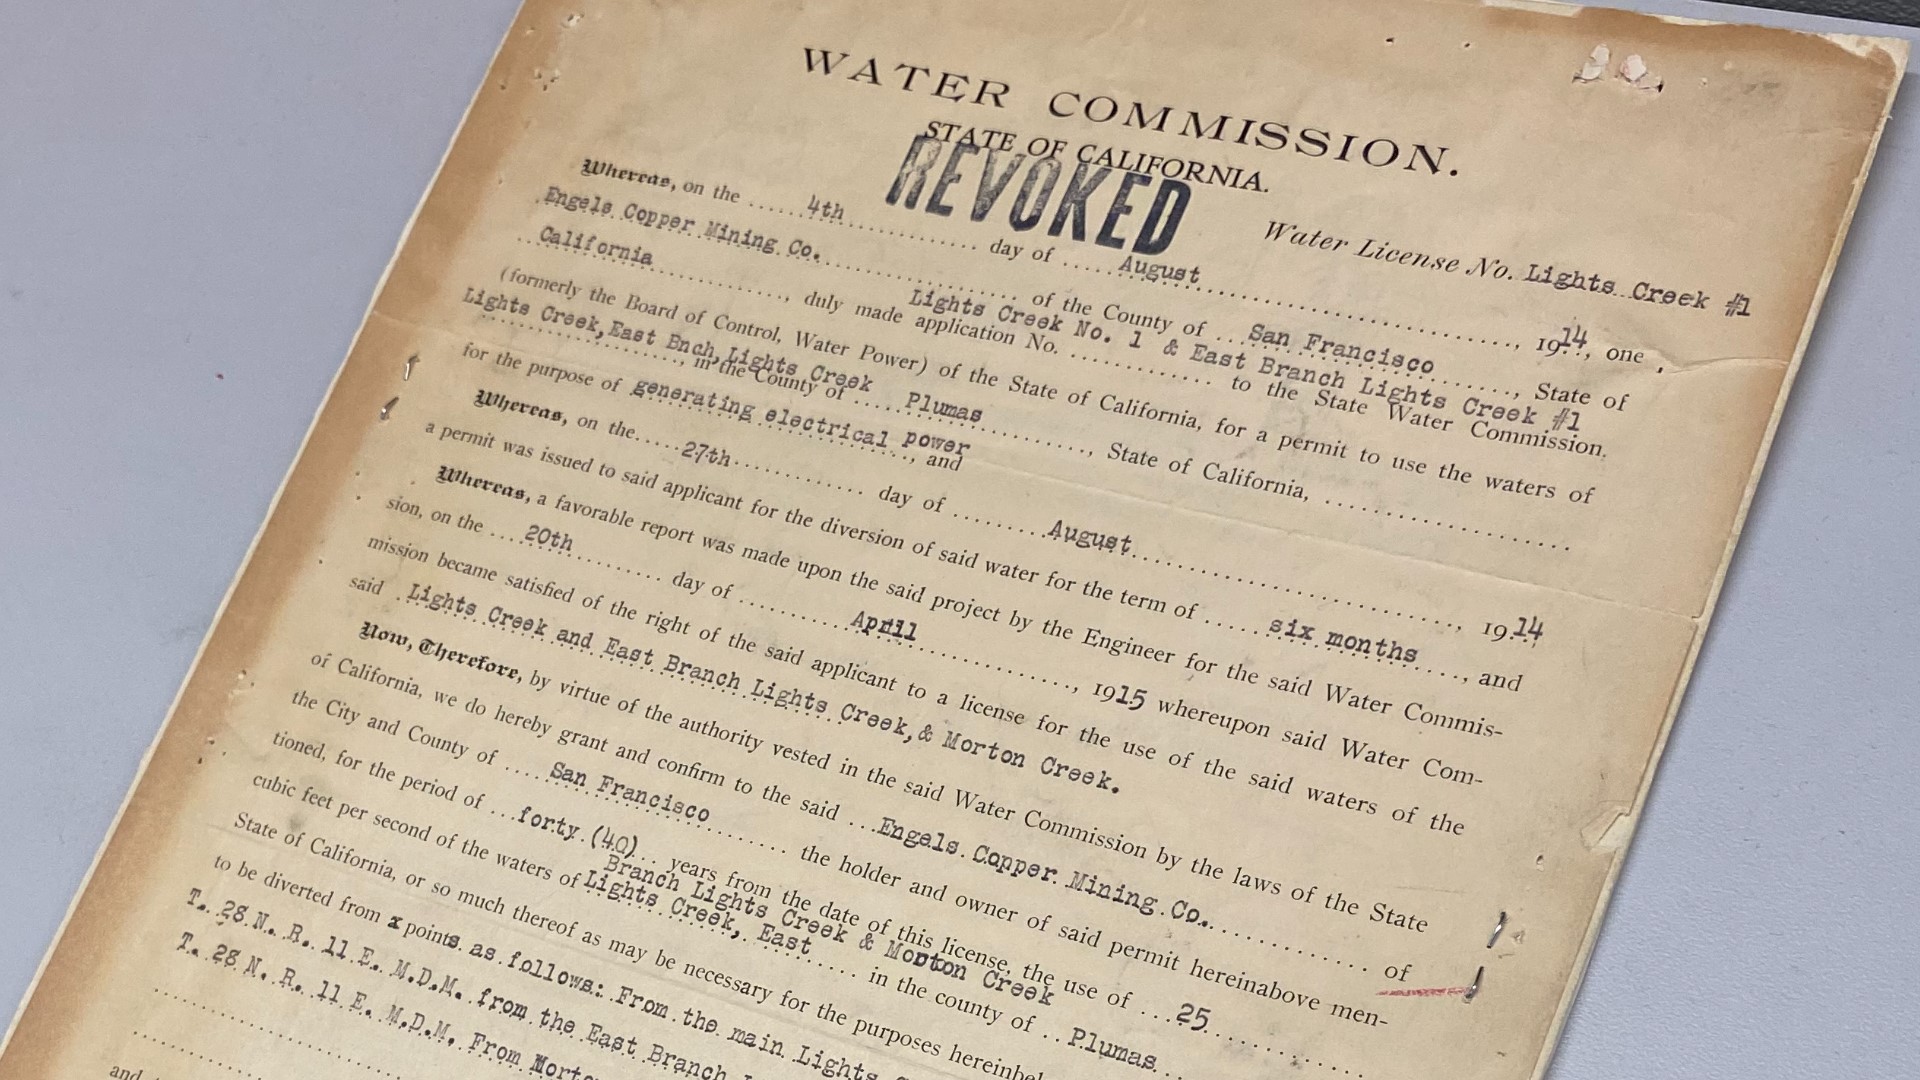 WATER COMMISSION.
STATE OF CALIFORNIA.
REVOKED
Water License No. Lights Creek #1
Whereas, on the 4th day of August, 1914, one
Engels Copper Mining Co. of the County of San Francisco, State of
California, duly made application No. Lights Creek No. 1 & East Branch Lights Creek #1 to the State Water Commission.
(formerly the Board of Control, Water Power) of the State of California, for a permit to use the waters of
Lights Creek, East Bnch, Lights Creek, in the County of Plumas, State of California,
for the purpose of generating electrical power, and
Whereas, on the 27th day of August, 1914
a permit was issued to said applicant for the diversion of said water for the term of six months, and
Whereas, a favorable report was made upon the said project by the Engineer for the said Water Commis-
sion, on the 20th day of April, 1915 whereupon said Water Com-
mission became satisfied of the right of the said applicant to a license for the use of the said waters of the
said Lights Creek and East Branch Lights Creek, & Morton Creek.
Now, Therefore, by virtue of the authority vested in the said Water Commission by the laws of the State
of California, we do hereby grant and confirm to the said Engels Copper Mining Co. of
the City and County of San Francisco the holder and owner of said permit hereinabove men-
tioned, for the period of forty (40) years from the date of this license, the use of 25
cubic feet per second of the waters of Lights Creek, East Branch Lights Creek & Morton Creek in the county of Plumas
State of California, or so much thereof as may be necessary for the purposes
to be diverted from x points as follows: From the main Lights
T. 28 N. R. 11 E. M.D.M. from the East Branch
T. 28 N. R. 11 E. M.D.M. From
and